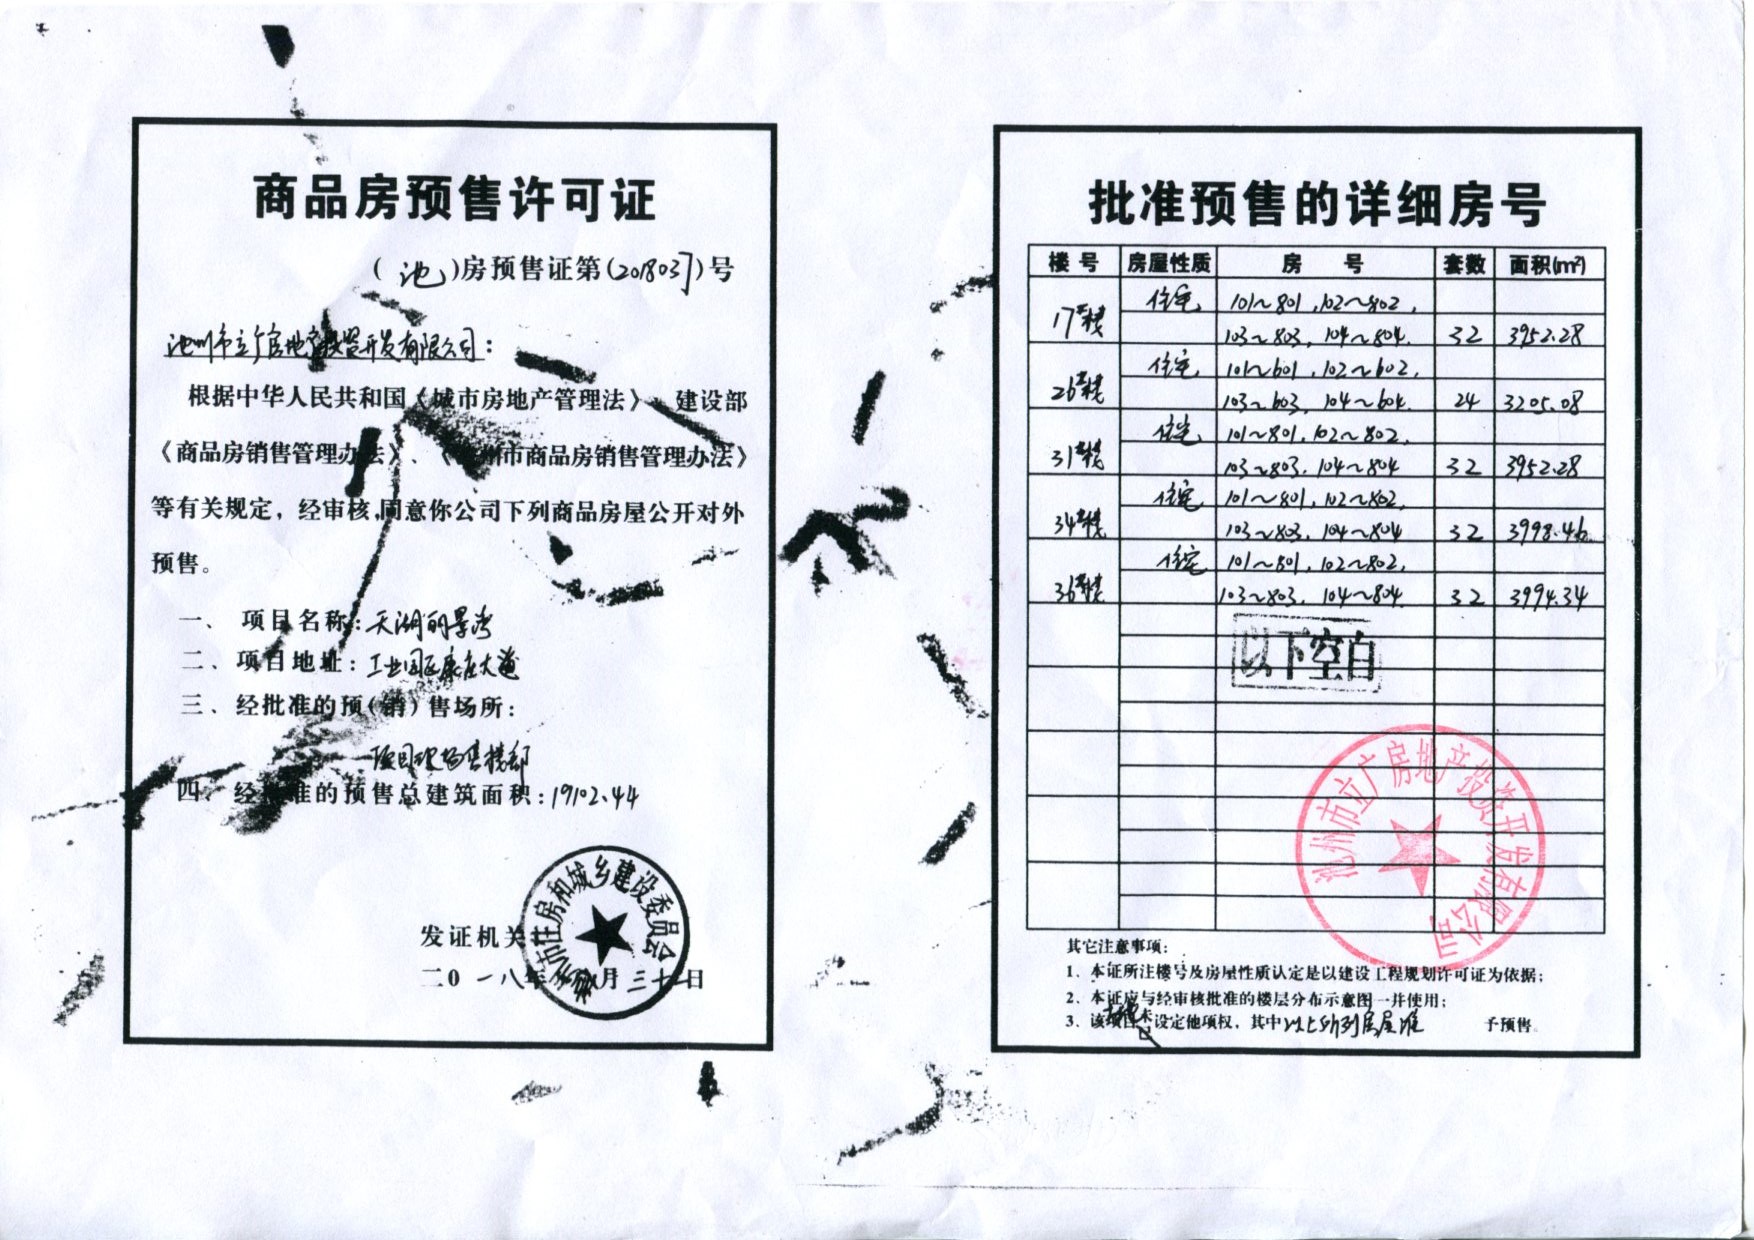 商品房预售许可证
(池)房预售证第(2018037)号
池州市立广房地产投资开发有限公司:
根据中华人民共和国《城市房地产管理法》、建设部
《商品房销售管理办法》、《池州市商品房销售管理办法》
等有关规定，经审核,同意你公司下列商品房屋公开对外
预售。
一、 项目名称:天湖丽景湾
二、项目地址：工业园区康庄大道
三、经批准的预(销)售场所:
项目现场售楼部
四、经批准的预售总建筑面积:19102.44
池州市住房和城乡建设委员会
发证机关:
二0一八年 月三十 日
批准预售的详细房号
楼号 房屋性质 房号 套数 面积(m²)
17#楼 住宅 101~801,102~802,
103~803, 104~804. 32 3952.28
26#楼 住宅 101~601,102~602,
103~603, 104~604. 24 3205.08
31#楼 住宅 101~801,102~802,
103~803, 104~804 32 3952.28
34#楼 住宅 101~801,102~802,
103~803, 104~804 32 3998.46
36#楼 住宅 101~801,102~802,
103~803, 104~804. 32 3994.34
以下空白
池州市立广房地产投资开发有限公司
其它注意事项:
1、本证所注楼号及房屋性质认定是以建设工程规划许可证为依据;
2、本证应与经审核批准的楼层分布示意图一并使用;
3、该项目未设定他项权，其中以上所列房屋准 予预售。